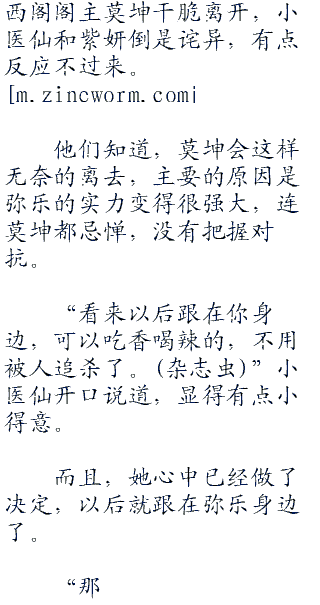 西阁阁主莫坤干脆离开，小
医仙和紫妍倒是诧异，有点
反应不过来。
[m.zincworm.com|
他们知道，莫坤会这样
无奈的离去，主要的原因是
弥乐的实力变得很强大，连
莫坤都忌惮，没有把握对
抗。
“看来以后跟在你身
边，可以吃香喝辣的，不用
被人追杀了。(杂志虫)”小
医仙开口说道，显得有点小
得意。
而且，她心中已经做了
决定，以后就跟在弥乐身边
了。
“那